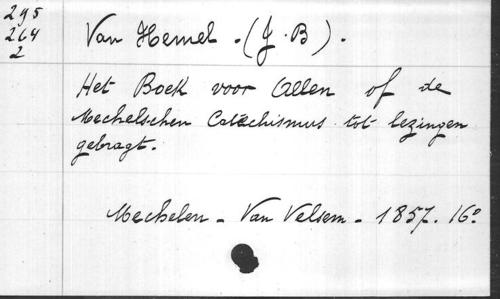 295
264
2
Van Hemel - (J. B).
Het Boek voor Allen of de
Mechelschen Catechismus tot lezingen
gebragt.
Mechelen - Van Velsem - 1857. 16°